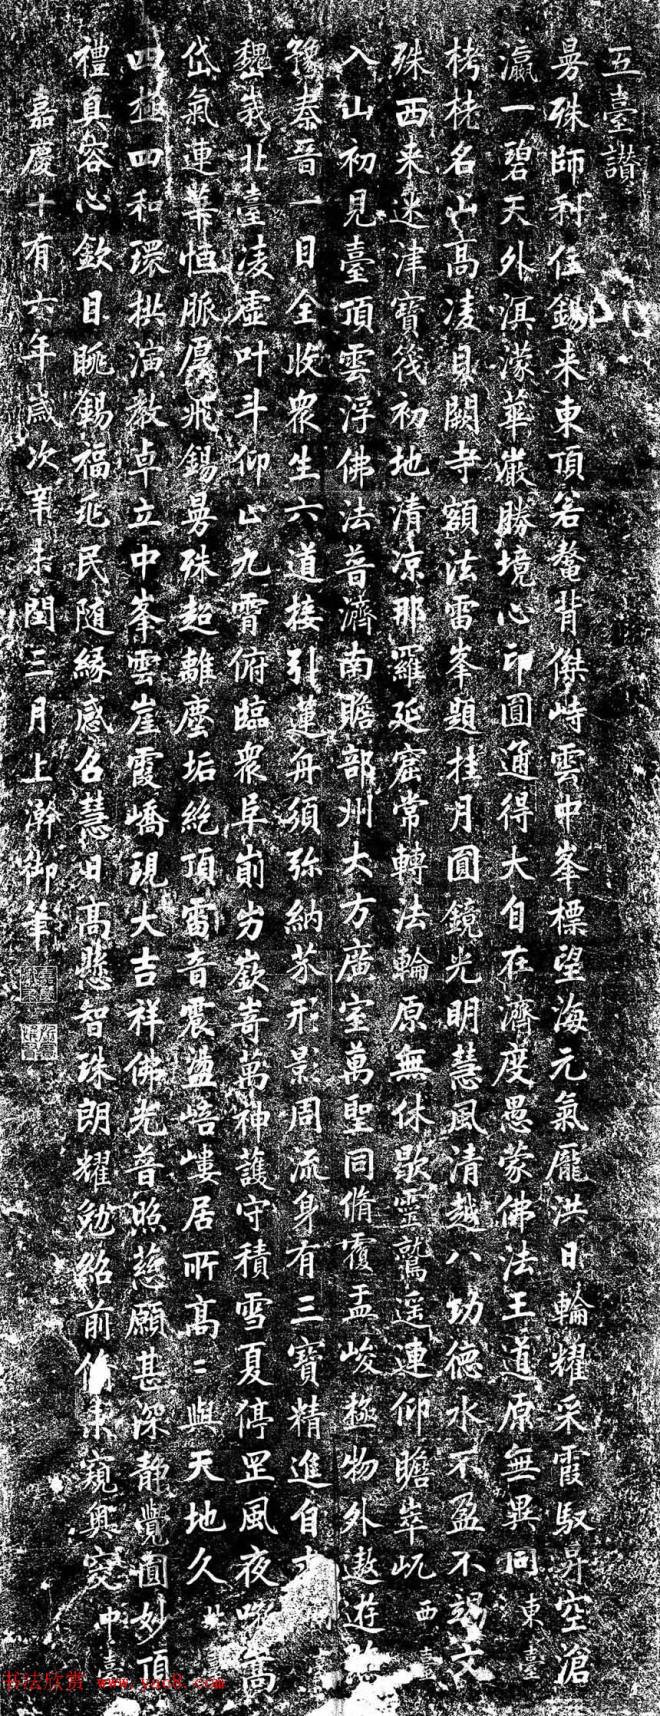 五臺讃
曼殊師利住錫来東頂名鼇背傑峙雲中峯標望海元氣龐洪日輪耀采霞馭昇空滄
瀛一碧天外溟濛華嚴勝境心印圓通得大自在濟度愚蒙佛法王道原無異同東臺
栲栳名山高凌貝闕寺額法雷峯題挂月圓鏡光明慧風清越八功德水不盈不竭文
殊西来迷津寶筏初地清凉那羅延窟常轉法輪原無休歇靈鷲遥連仰瞻崒屼西臺
入山初見臺頂雲浮佛法普濟南贍部州大方廣室萬聖同脩覆盂峻極物外遨遊
豫秦晉一目全收衆生六道接引蓮舟須弥納芥形影周流身有三寶精進自
巍峩北臺凌虚叶斗仰止九霄俯臨衆阜崱屴嶔嵜萬神護守積雪夏停罡風夜喉嵩
岱氣連華恒脈厚飛錫曼殊超離塵垢絶頂雷音震盪峿嶁居所高〻與天地久北
四極四和環拱演教卓立中峯雲崖霞嶠現大吉祥佛光普照慈願甚深静覺圓妙頂
禮真容心欽目眺錫福兆民随緣感召慧日高懸智珠朗耀勉紹前脩窺奥窔中臺
嘉慶十有六年歲次辛未閏三月上澣御筆
书法欣赏 www.yac8.com